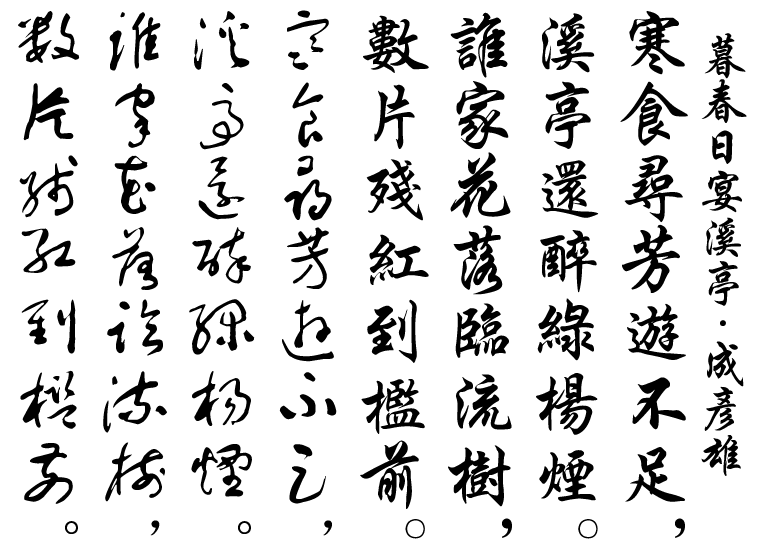 暮春日宴溪亭·成彥雄
寒食尋芳遊不足，
溪亭還醉綠楊煙。
誰家花落臨流樹，
數片殘紅到檻前。
寒食尋芳遊不足，
溪亭還醉綠楊煙。
誰家花落臨流樹，
數片殘紅到檻前。